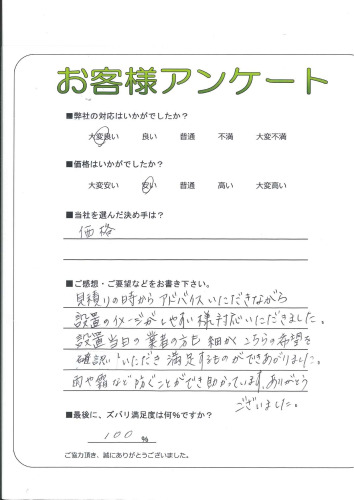 お客様アンケート
■弊社の対応はいかがでしたか?
大変良い 良い 普通 不満 大変不満
■価格はいかがでしたか?
大変安い 安い 普通 高い 大変高い
■当社を選んだ決め手は?
価格
■ご感想・ご要望などをお書き下さい。
見積りの時からアドバイスいただきながら
設置のイメージがしやすい様対応いただきました。
設置当日の業者の方も細かくこちらの希望を
確認いただき満足するものができあがりました。
雨や霜など防ぐことができ助かっています。ありがとう
ございました。
■最後に、ズバリ満足度は何%ですか?
100 %
ご協力頂き、誠にありがとうございました。